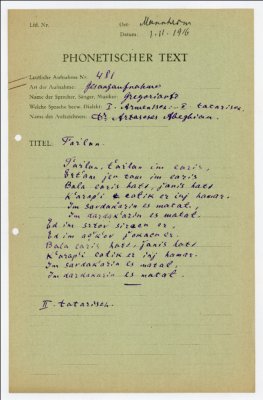 Lfd. Nr. Ort: Mannheim
Datum: 1.11.1916
PHONETISCHER TEXT
Lautlicher Aufnahme Nr. 481
Art der Aufnahme: Gesangaufnahme
Name des Sprecher, Sänger, Musiker:
Welche Sprache bezw. Dialekt: I. Armenisch - II tatarisch.
Name des Aufzeichners: Dr. Artasches Abeghian.
TITEL: Tarlan.
Tarlan, tarlan im caris,
Ertam jen tam im caris
Bala caris hats, janis hats
K'arap'i cotik er inj hamar.
Im sardak'arin es matat,
Im dardak'arin es matat.
Ed im srtov siracn er,
Ed im
Bala caris hats, janis hats
K'arap'i cotik er inj hamar.
Im sardak'arin es matat,
Im dardak'arin es matat.
II. tatarisch.